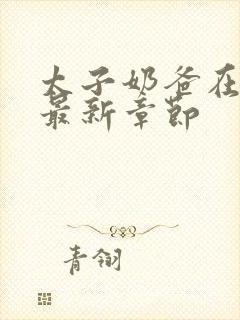 太子奶爸在
最新章节
青翎